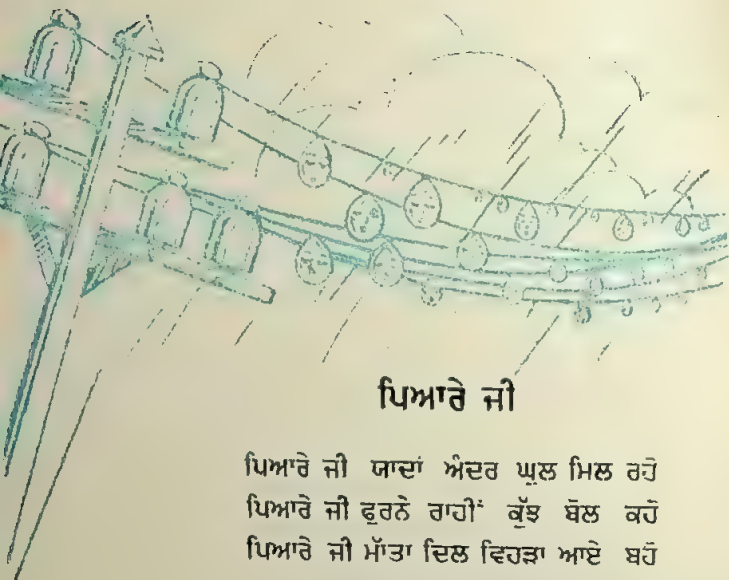 ਪਿਆਰੇ ਜੀ
ਪਿਆਰੇ ਜੀ ਯਾਦਾਂ ਅੰਦਰ ਘੁਲ ਮਿਲ ਰਹੋ
ਪਿਆਰੇ ਜੀ ਫੁਰਨੇ ਰਾਹੀਂ ਕੁੱਝ ਬੋਲ ਕਹੋ
ਪਿਆਰੇ ਜੀ ਮੱਤਾ ਦਿਲ ਵਿਹੜਾ ਆਏ ਬਹੋ